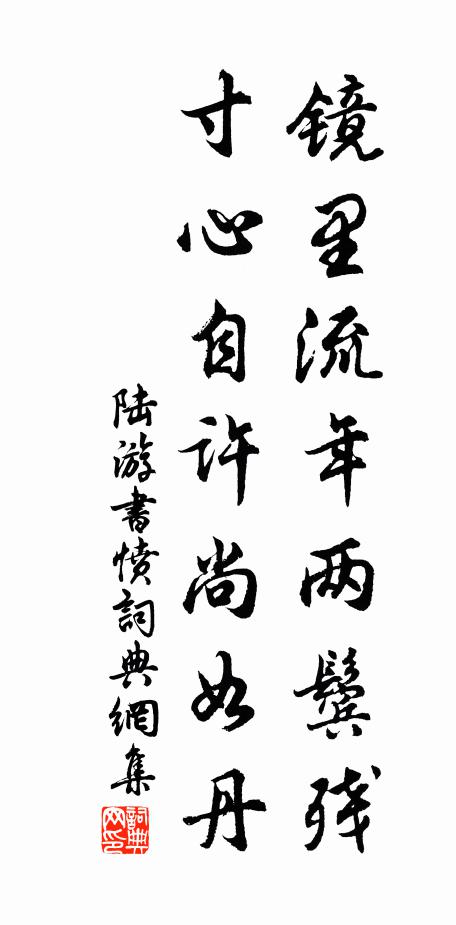 镜里流年两鬓残
寸心自许尚如丹
陆游书愤詞典網集
詞典网印